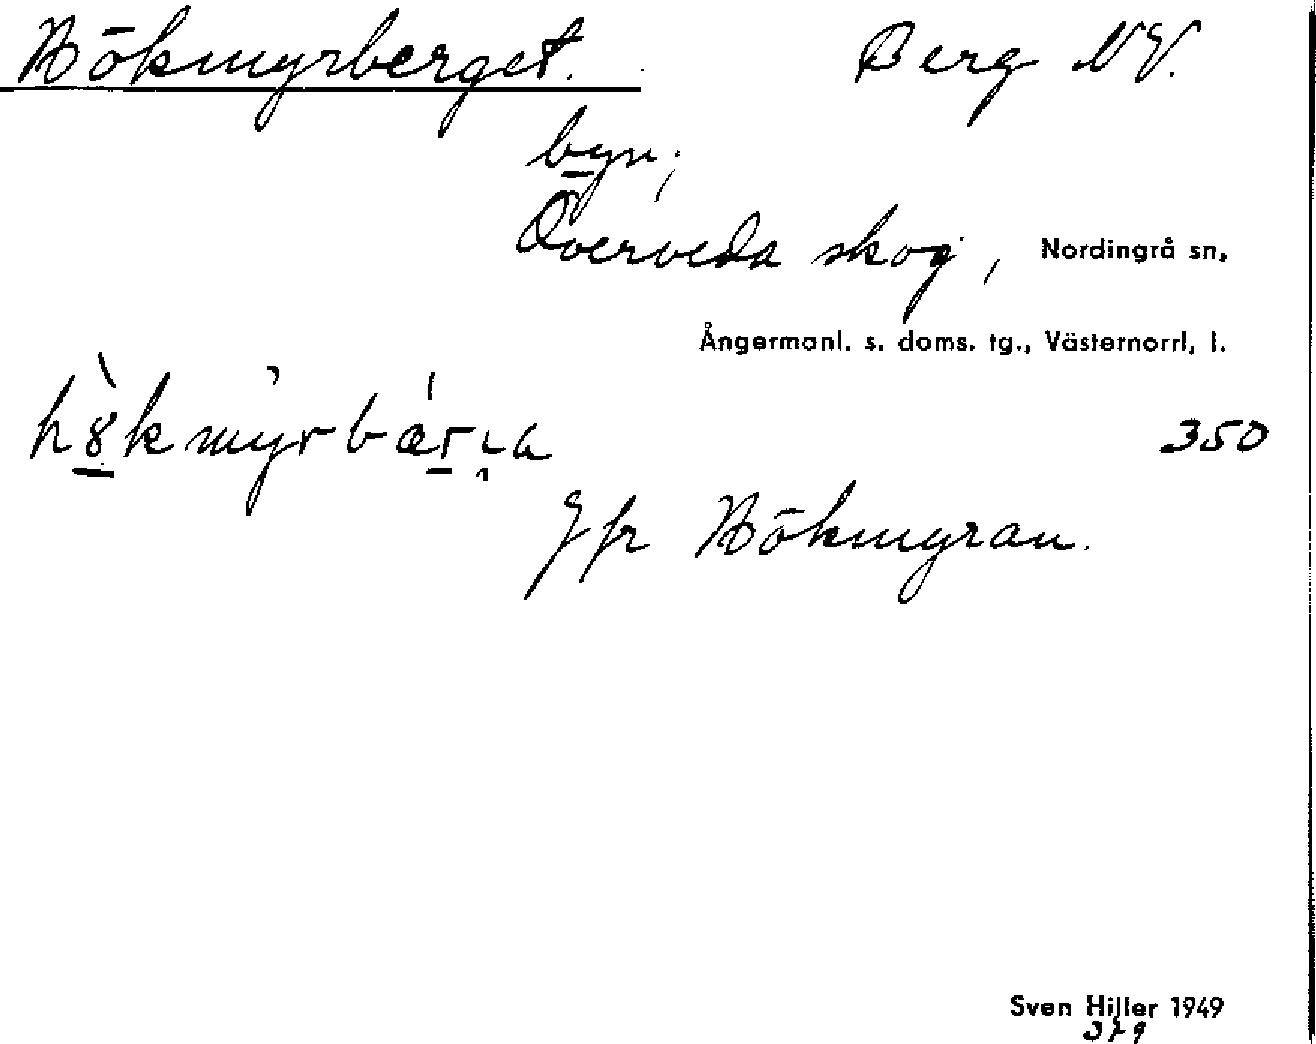 Hökmyrberget. Berg NV.
byn;
Överveda skog, Nordingrå sn,
Ångermanl. s. doms. tg., Västernorrl, l.
350
Jfr Hökmyran.
Sven Hiller 1949